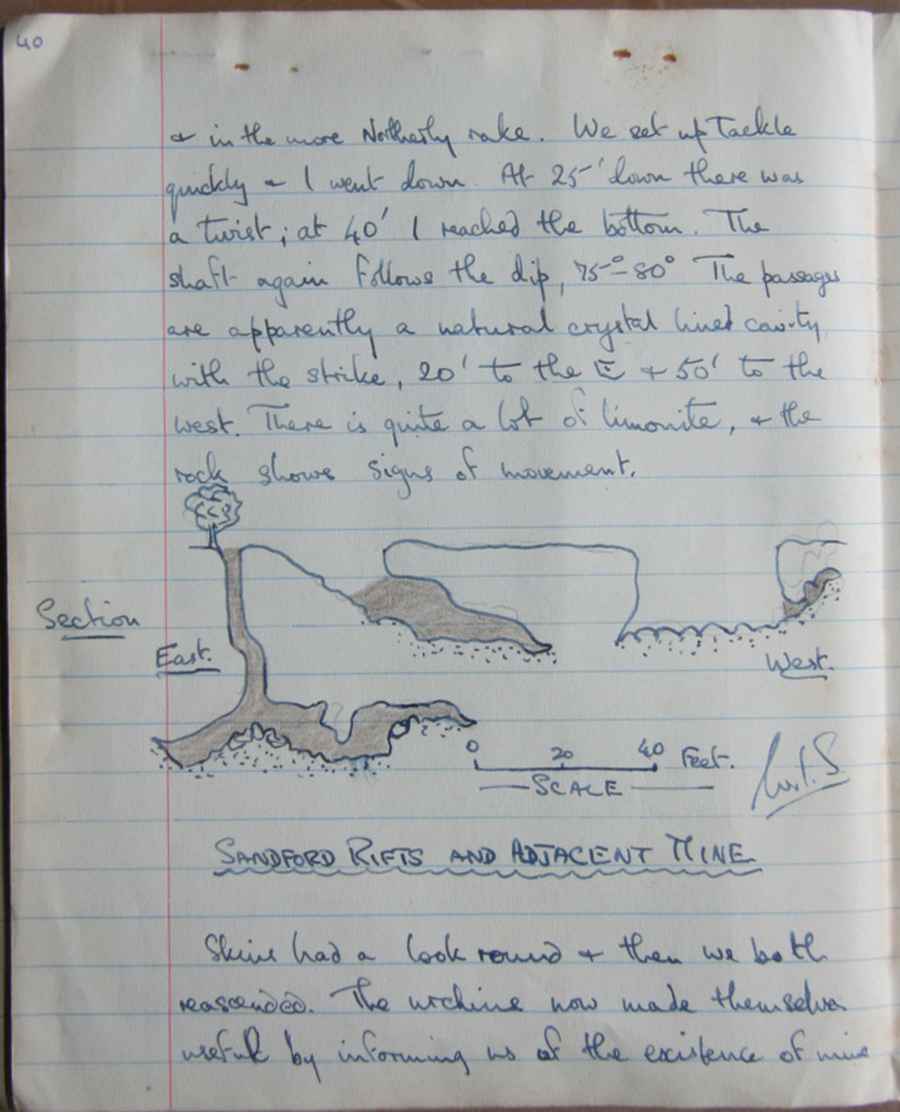 40
& in the more Northerly rake. We set up Tackle
quickly & I went down. At 25' down there was
a twist; at 40' I reached the bottom. The
shaft again follows the dip, 75°-80° The passages
are apparently a natural crystal lined cavity
with the strike, 20' to the E & 50' to the
west. There is quite a lot of limonite, & the
rock shows signs of movement.
Section
East.
West.
0 20 40 Feet.
SCALE
SANDFORD RIFTS AND ADJACENT MINE
had a look round & then we both
reascended. The urchins now made themselves
useful by informing us of the existence of mine